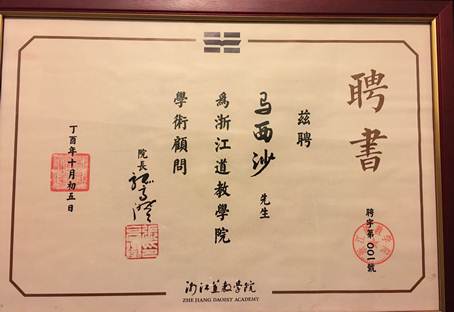 聘書
聘字第001號
茲聘
马西沙 先生
為浙江道教學院
學術顧問
院長
丁酉年十月初五日
浙江道教學院
ZHE JIANG DAOIST ACADEMY